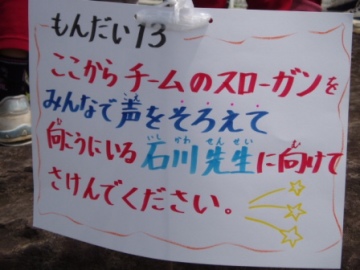 もんだい13
ここからチームのスローガンを
みんなで声をそろえて
向こうにいる石川先生に向けて
さけんでください。